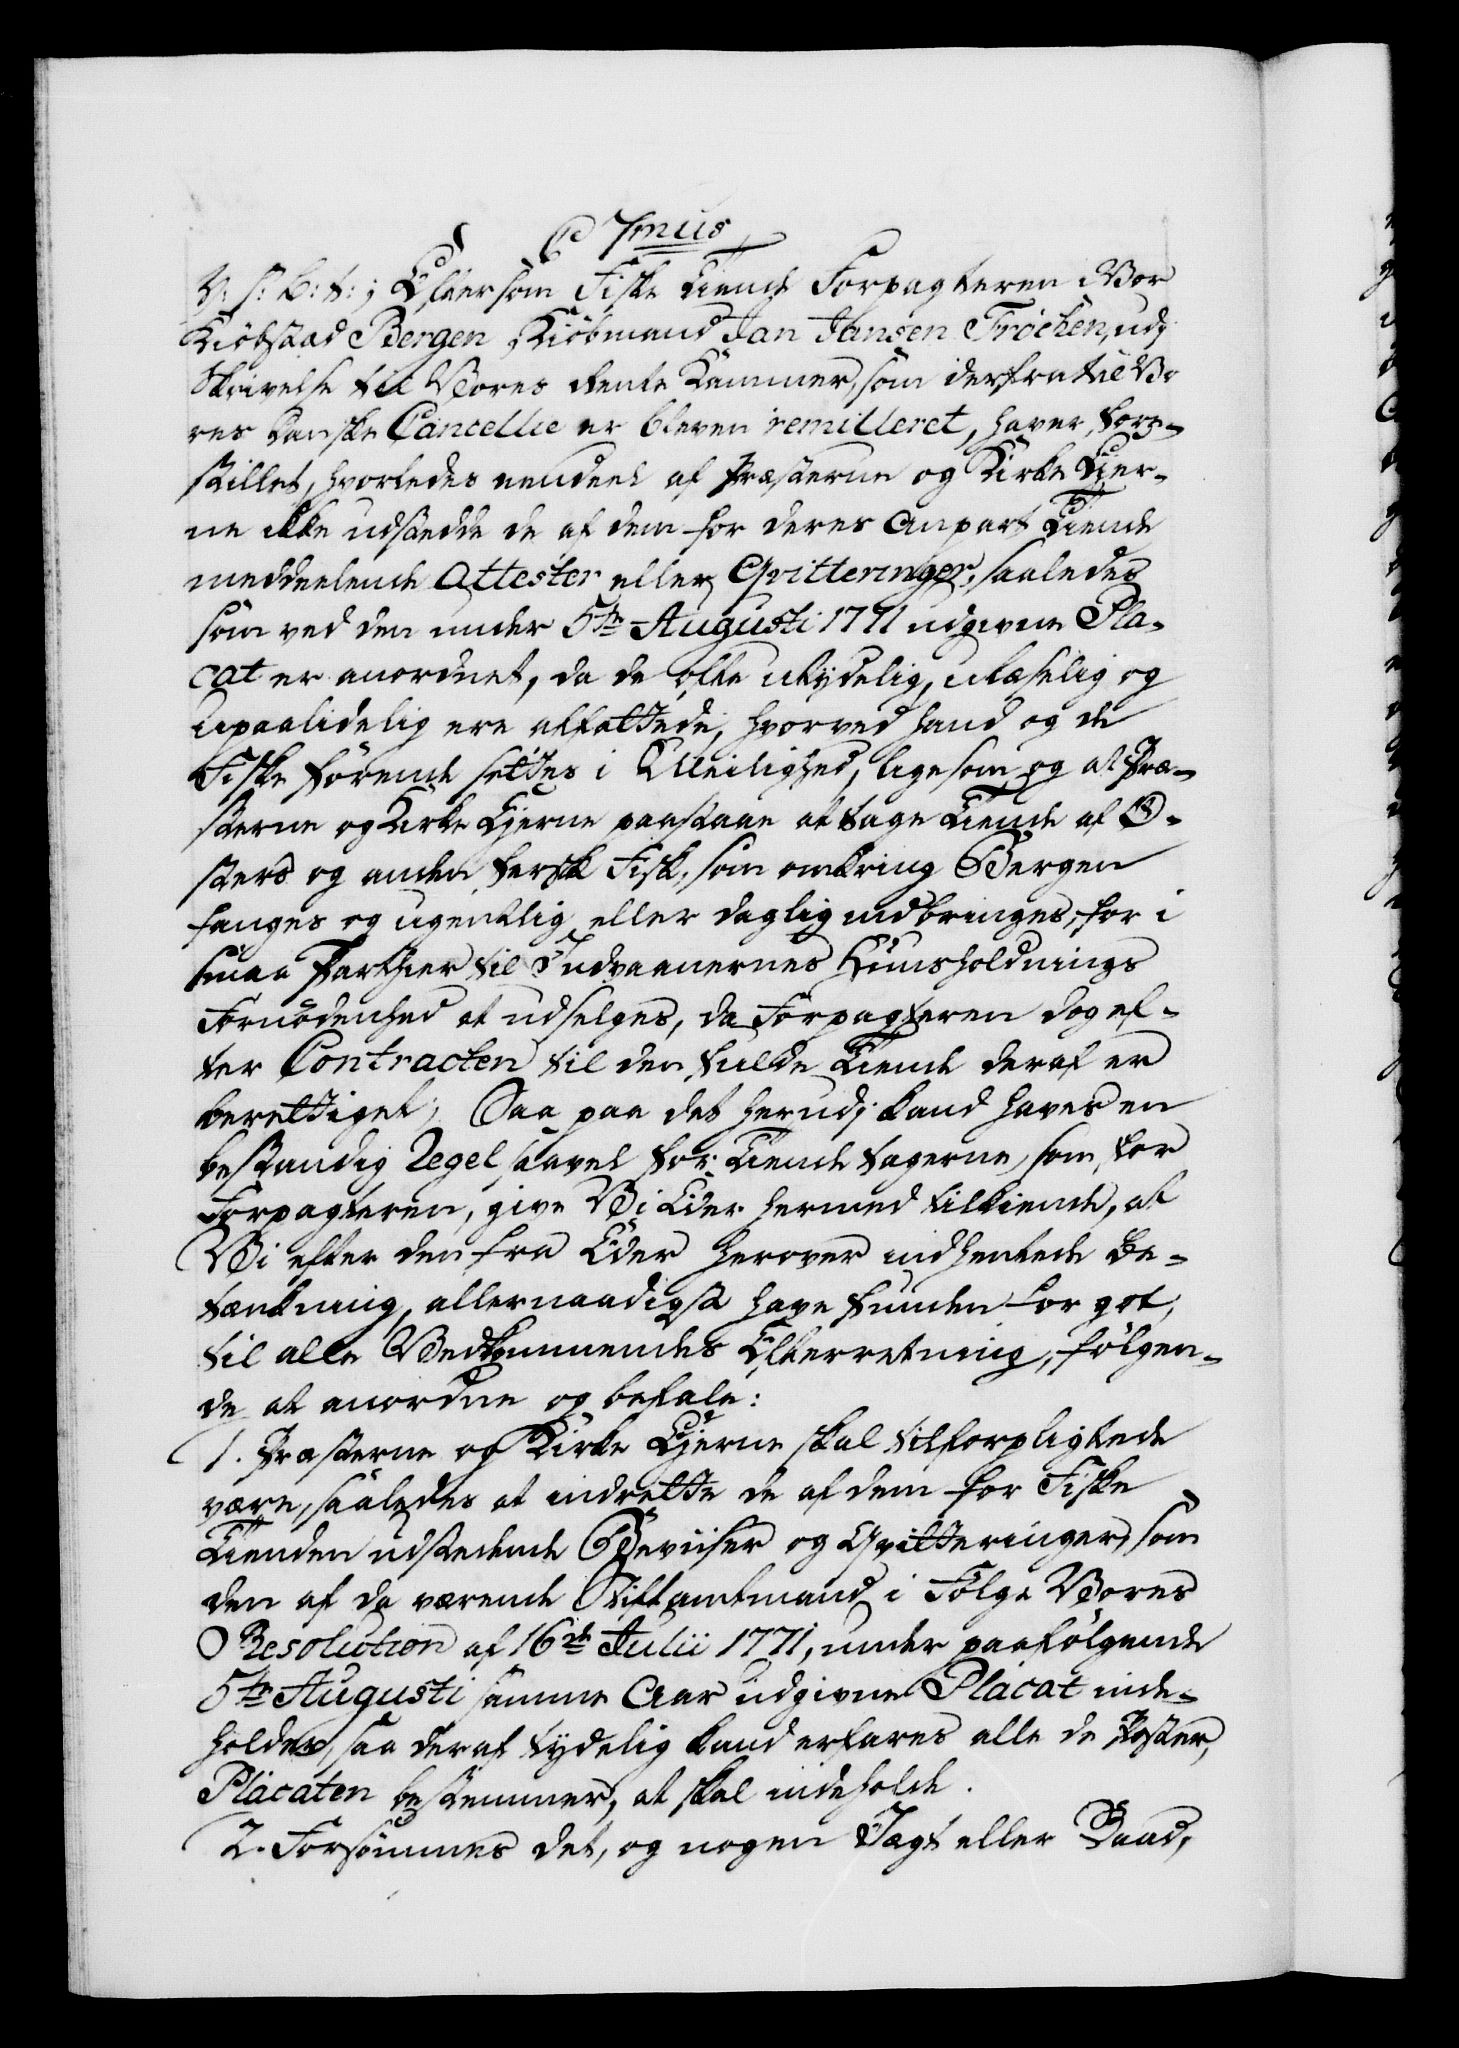 C 7mus
V: S: B: T:; Eftersom Fiske Tiende Forpagteren i Vor
Kiöbstad Bergen, Kiöbmand Jan Jansen Fröchen, udj
Skrivelse til Vores Rente Kammer, som derfra til Vo
res Danske Cancellie er bleven remitteret, haver fore-
stillet, hvorledes eendeel af Præsterne og Kirke Ejer-
ne ikke udstædde de af dem for deres Anpart Tiende
meddeelende Attester eller Qvitteringer, saaledes
som ved den under 5te Augusti 1771 udgivne Pla-
cat er anordnet, da de ofte utydelig, ulæselig og
upaalidelig ere affattede, hvorved hand og de
Fiske förende settes i Uleilighed, ligesom og at Præ-
sterne og Kirke Ejerne paastaae at tage Tiende af O-
sters og anden fersk Fisk, som omkring Bergen
fanges og ugentlig eller daglig indbringes, for i
smaa Parthier til Indvaanernes Huusholdnings
Fornödenhed at udselges, da Forpagteren dog ef-
ter Contracten til den fulde Tiende deraf er
berettiget; Saa paa det herudj kand haves en
bestandig Regel, saavel for Tiende tagerne, som for
Forpagteren, give Vi Eder hermed tilkiende, at
Vi efter den fra Eder herover indhentede Be-
tænkning, allernaadigst have funden for got,
til alle Vedkommendes Efterretning, fölgen-
de at anordne og befale:
1. Præsterne og Kirke Ejerne skal tilforpligtede
være, saaledes at indrette de af dem for Fiske
Tienden udstedende Beviiser og Qvitteringer, som
den af da værende Stiftamtmand i Fölge Vores
Resolution af 16de Julii 1771, under paafölgende
5te Augusti samme Aar udgivne Placat inde-
holder, saa deraf tydelig kand erfares alle de Poster,
Placaten bestemmer, at skal indeholde.
2. Forsömmes det, og nogen Jægt eller Baad,